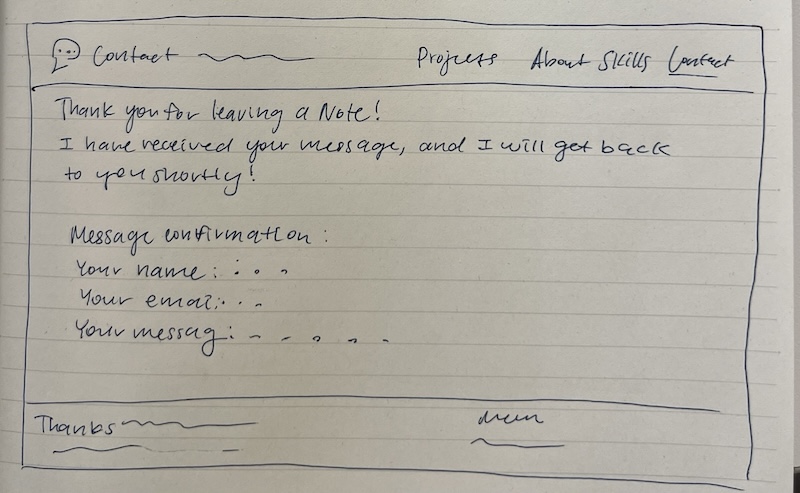 Contact
Projects About Skills Contact
Thank you for leaving a Note!
I have received your message, and I will get back
to you shortly!
Message confirmation:
Your name: . . .
Your email: . . .
Your messag: - - - - -
Thanks